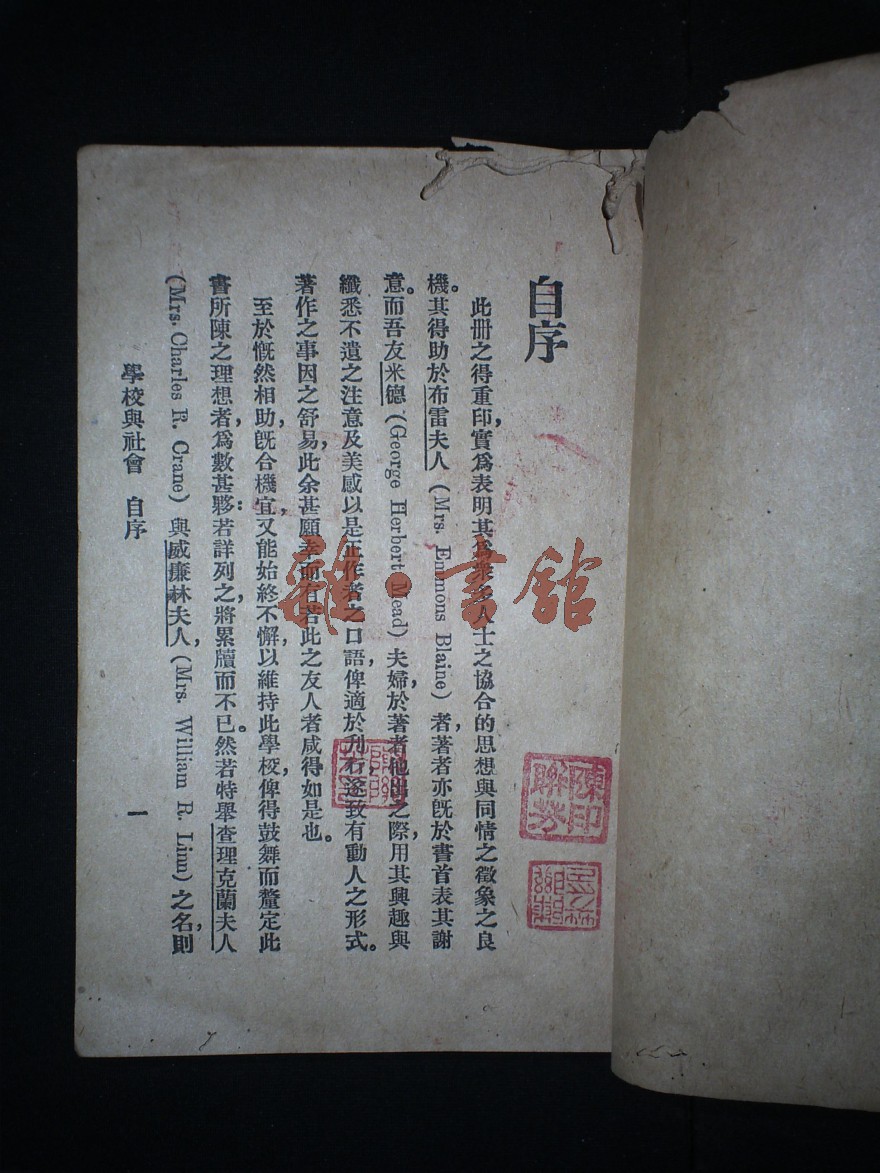 自序
此冊之得重印，實爲表明其爲衆多人士之協合的思想與同情之徵象之良
機。其得助於布雷夫人（Mrs. Emmons Blaine）者，著者亦旣於書首表其謝
意。而吾友米德（George Herbert Mead）夫婦，於著者他出之際，用其興趣與
纖悉不遺之注意及美感以是正作者之口語，俾適於刋行，遂致有動人之形式。
著作之事因之舒易，此余甚願幸而有若此之友人者咸得如是也。
至於慨然相助，旣合機宜，又能始終不懈，以維持此學校，俾得鼓舞而釐定此
書所陳之理想者，爲數甚夥；若詳列之，將累牘而不已。然若特舉查理克蘭夫人
（Mrs. Charles R. Crane）與威廉林夫人，（Mrs. William R. Linn）之名，則
學校與社會　自序
一
雜·書館
陳印
聯芬